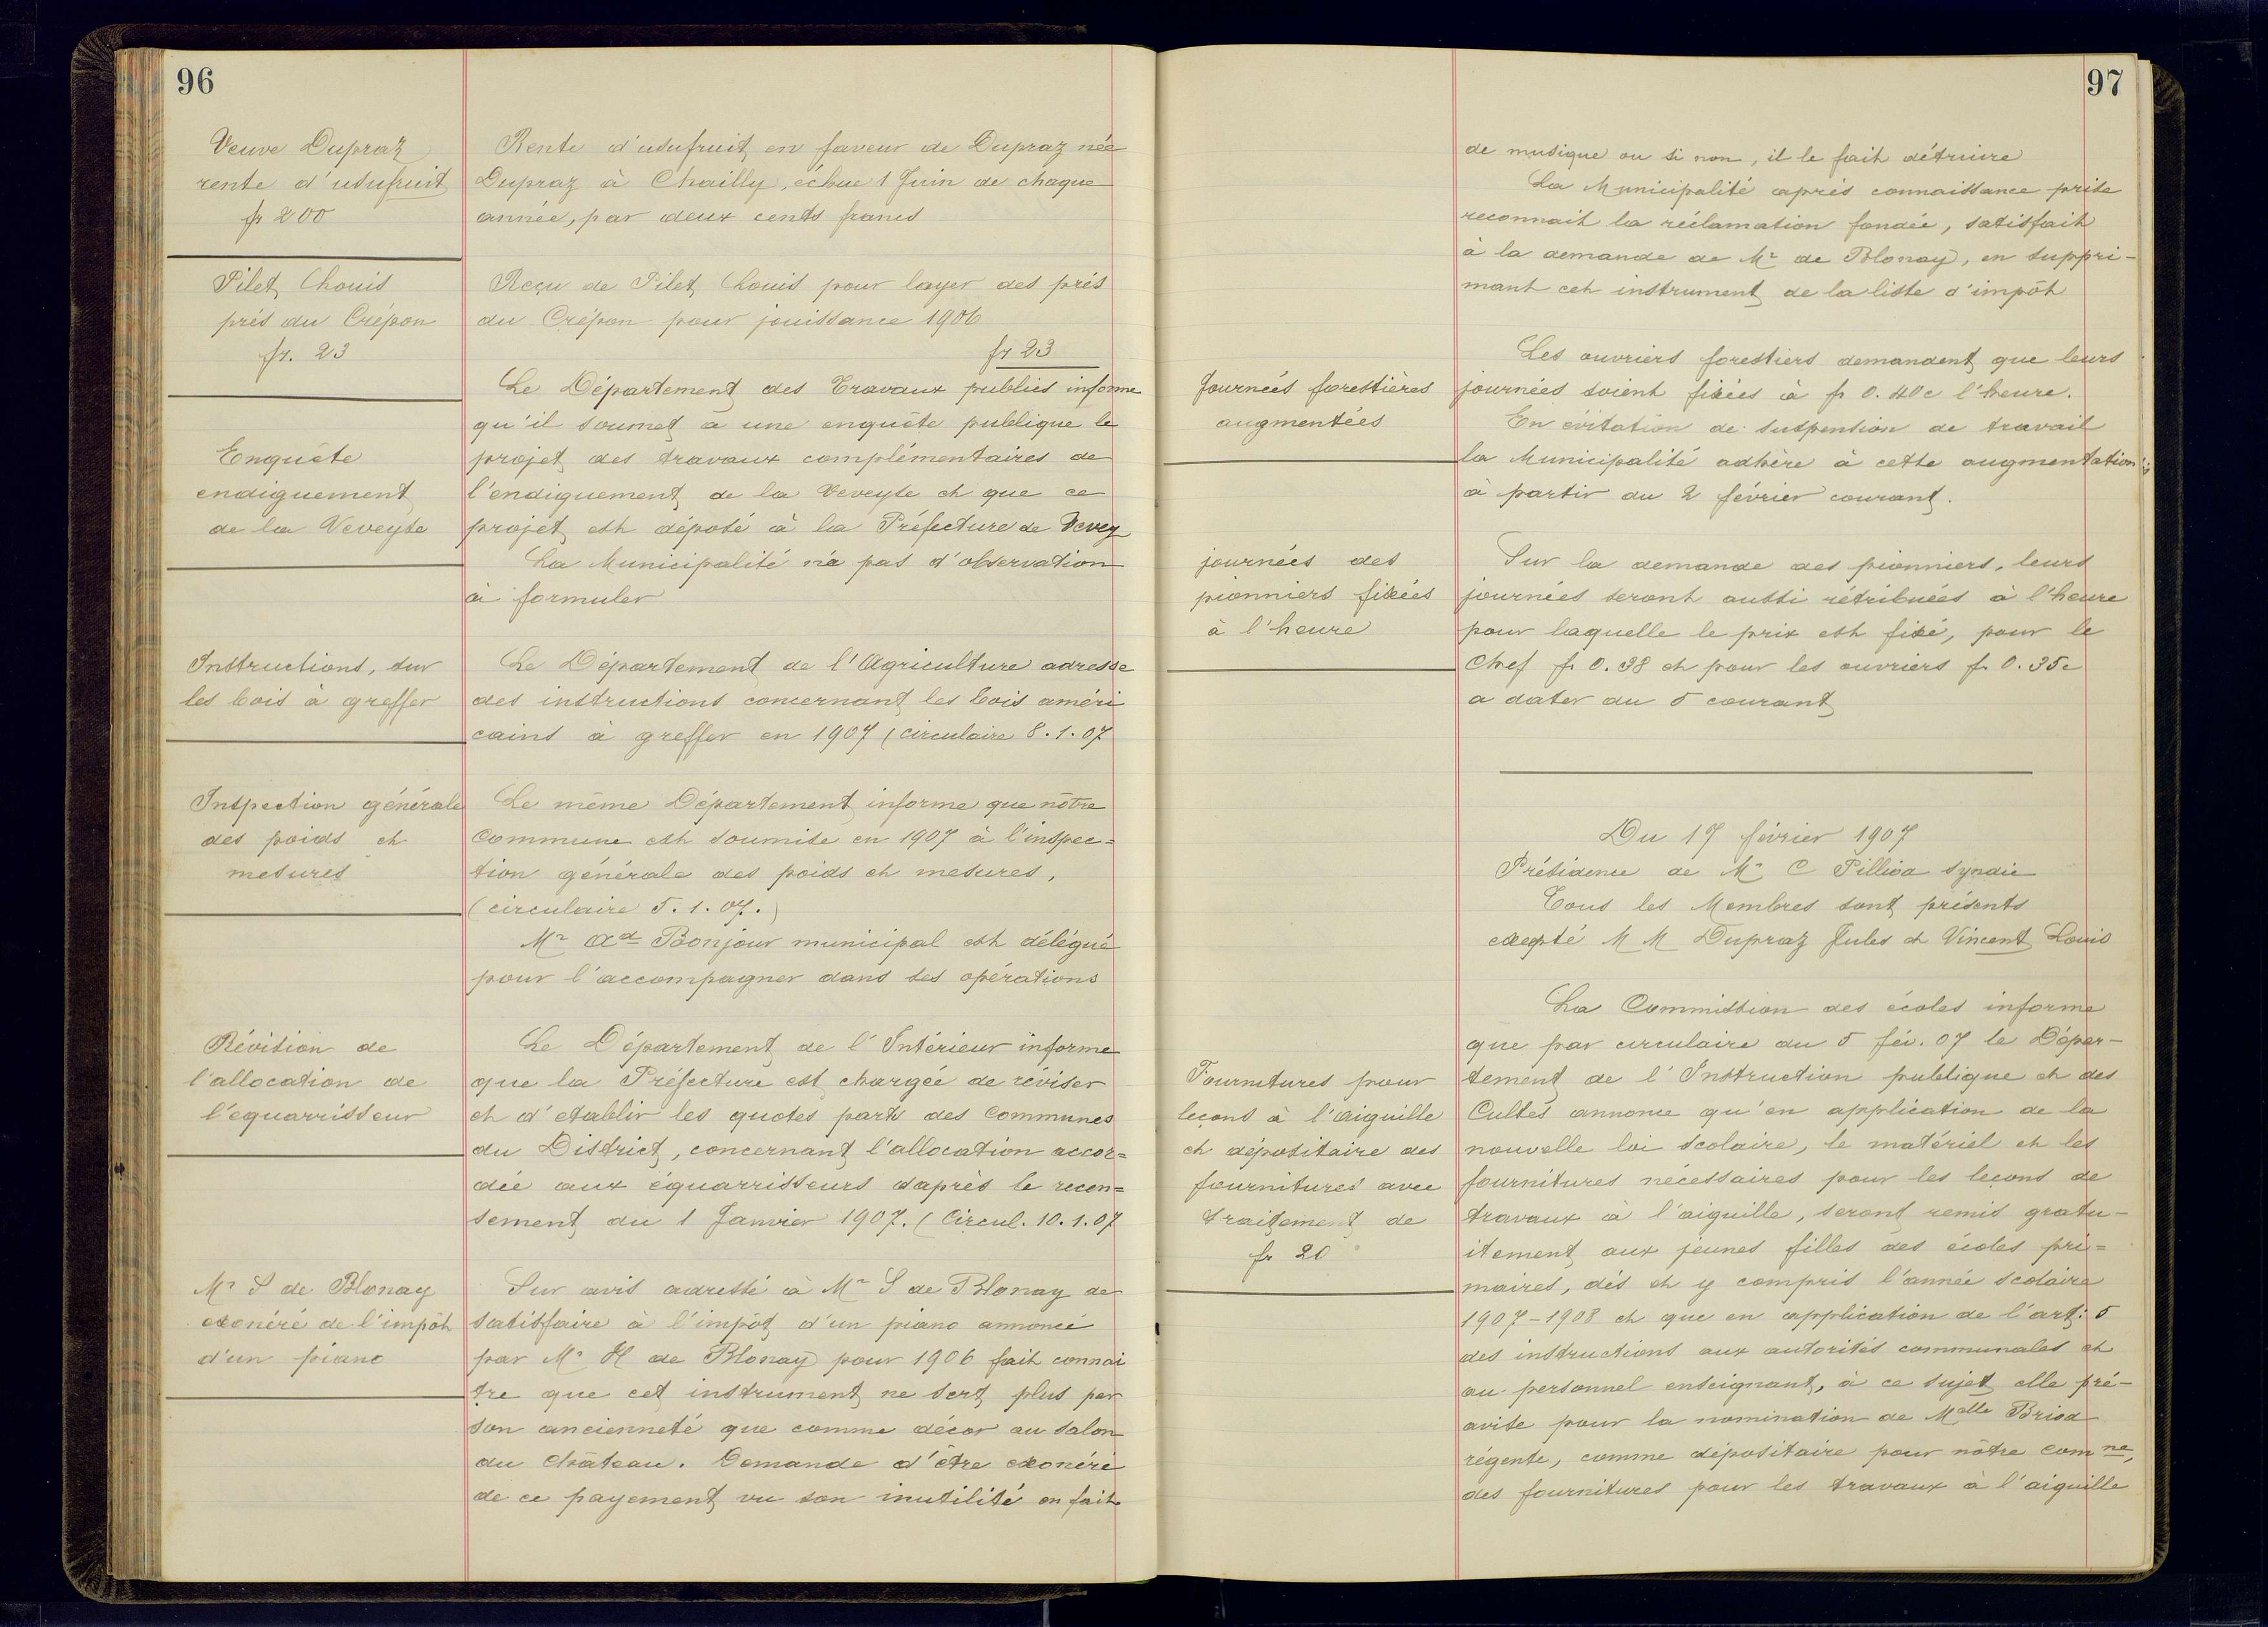 96
Veuve Dupraz
rente d'usufruit
fr 200
Rente d'usufruit en faveur de Dupraz née
Dupraz à Chailly, échue 1 Juin de chaque
année, par deux cents francs
Pilet Louis
prés du Crépon
fr. 23
Reçu de Pilet Louis pour loyer des prés
du Crépon pour jouissance 1906
fr 23
Enquête
endiguement
de la Veveyse
Le Département des Travaux publics informe
qu'il soumet à une enquête publique le
projet des travaux complémentaires de
l'endiguement de la Veveyse et que ce
projet est déposé à la Préfecture de Vevey
La Municipalité n'a pas d'observation
à formuler
Instructions, sur
les bois à greffer
Le Département de l'Agriculture adresse
des instructions concernant les bois améri
cains à greffer en 1907 (circulaire 8.1.07
Inspection générale
des poids et
mesures
Le même Département informe que nôtre
Commune est soumise en 1907 à l'inspec=
tion générale des poids et mesures,
(circulaire 5.1.07.)
Mr Ad Bonjour municipal est délégué
pour l'accompagner dans ses opérations
Révision de
l'allocation de
l'équarrisseur
Le Département de l'Intérieur informe
que la Préfecture est chargée de réviser
et d'etablir les quotes parts des Communes
du District, concernant l'allocation accor=
dée aux équarrisseurs d'après le recen=
sement du 1 Janvier 1907. (Circul. 10.1.07
Mr S de Blonay
exonéré de l'impôt
d'un piano
Sur avis adressé à Mr S de Blonay de
satisfaire à l'impôt d'un piano annoncé
par Mr H de Blonay pour 1906 fait connai
tre que cet instrument ne sert plus par
son ancienneté que comme décor au salon
du Château. Demande d'être exonéré
de ce payement vu son inutilité en fait
97
de musique ou si non, il le fait détruire
La Municipalité après connaissance prise
reconnait la réclamation fondée, satisfait
à la demande de Mr de Blonay, en suppri-
mant cet instrument de la liste d'impôt
Journées forestières
augmentées
Les ouvriers forestiers demandent que leurs
journées soient fixées à fr 0.40c l'heure.
En évitation de suspension de travail
la Municipalité adhère à cette augmentation
à partir du 2 février courant.
journées des
pionniers fixées
à l'heure
Sur la demande des pionniers, leurs
journées seront aussi rétribuées à l'heure
pour laquelle le prix est fixé, pour le
Chef fr 0.38 et pour les ouvriers fr 0.35c
a dater du 5 courant
Du 17 février 1907
Présidence de Mr C Pilliod Syndic
Tous les Membres sont présents
excepté M M Dupraz Jules et Vincent Louis
Fournitures pour
leçons à l'aiguille
et dépositaire des
fournitures avec
traitement de
fr 20
La Commission des écoles informe
que par circulaire du 5 fév. 07 le Dépar-
tement de l'Instruction publique et des
Cultes annonce qu'en application de la
nouvelle loi scolaire, le matériel et les
fournitures nécessaires pour les leçons de
travaux à l'aiguille, seront remis gratu-
itement aux jeunes filles des écoles pri=
maires, dés et y compris l'année scolaire
1907-1908 et que en application de l'art: 5
des instructions aux autorités communales et
au personnel enseignant, à ce sujet elle pré-
avise pour la nomination de Melle Briod
régente, comme dépositaire pour nôtre comne,
des fournitures pour les travaux à l'aiguille